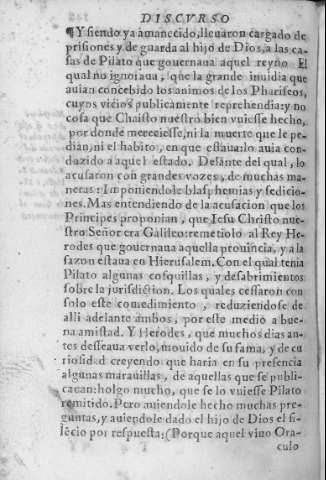 DISCVRSO
¶Y siendo ya amanecido, lleuaron cargado de
prisiones y de guarda al hijo de Dios, a las ca-
sas de Pilato que gouernaua aquel reyno El
qual no ignoraua, que la grande inuidia que
auian concebido los animos de los Phariseos,
cuyos vicios publicamente reprehendia: y no
cosa que Chaisto nuestro bien vuiesse hecho,
por donde mereciesse, ni la muerte que le pe-
dian, ni el habito, en que estauan lo auia con-
duzido a aquel estado. Delante del qual, lo
acusaron con grandes vozes, de muchas ma-
neras: Imponiendole blasphemias y sedicio-
nes. Mas entendiendo de la acusacion que los
Principes proponian, que Jesu Christo nue-
stro Señor era Galileo: remetiolo al Rey He-
rodes que gouernaua aquella prouincia, y a la
sazon estaua en Hierusalem. Con el qual tenia
Pilato algunas cosquillas, y desabrimientos
sobre la jurisdiction. Los quales cessaron con
solo este comedimiento, reduziendose de
alli adelante ambos, por este medio a bue-
na amistad. Y Herodes, que muchos dias an-
tes desseaua verlo, mouido de su fama, y de cu
riosidad creyendo que haria en su presencia
algunas marauillas, de aquellas que se publi-
cauan: holgo mucho, que se lo vuiesse Pilato
remitido. Pero auiendole hecho muchas pre-
guntas, y auiendole dado el hijo de Dios el si-
lecio por respuesta: (Porque aquel viuo Ora-
culo